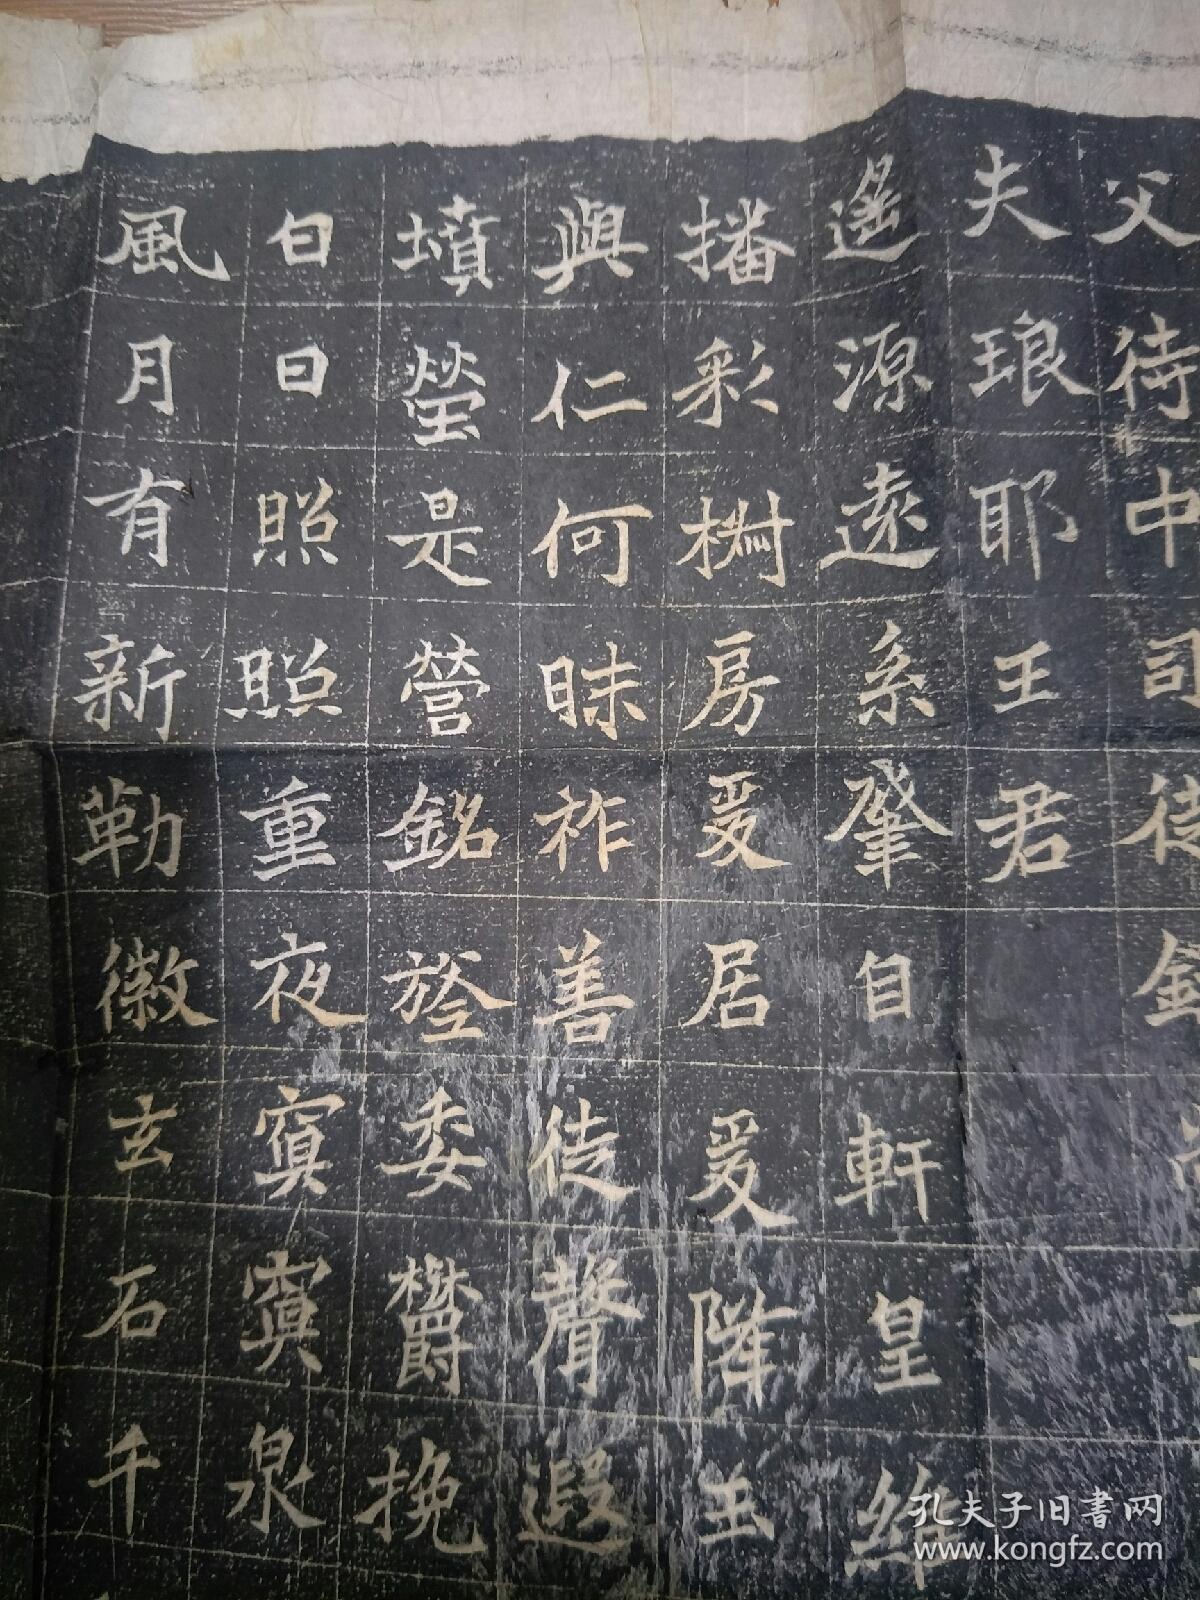 父侍中司徒錄尚
夫琅耶王君
遙源遠系肇自軒皇維
播彩樹房爰居爰降玉
與仁何昧祚善徒聲遐
墳螢是營銘旌委欝挽
白日照照重夜冥冥泉
風月有新勒徽玄石千
孔夫子旧書网
www.kongfz.com